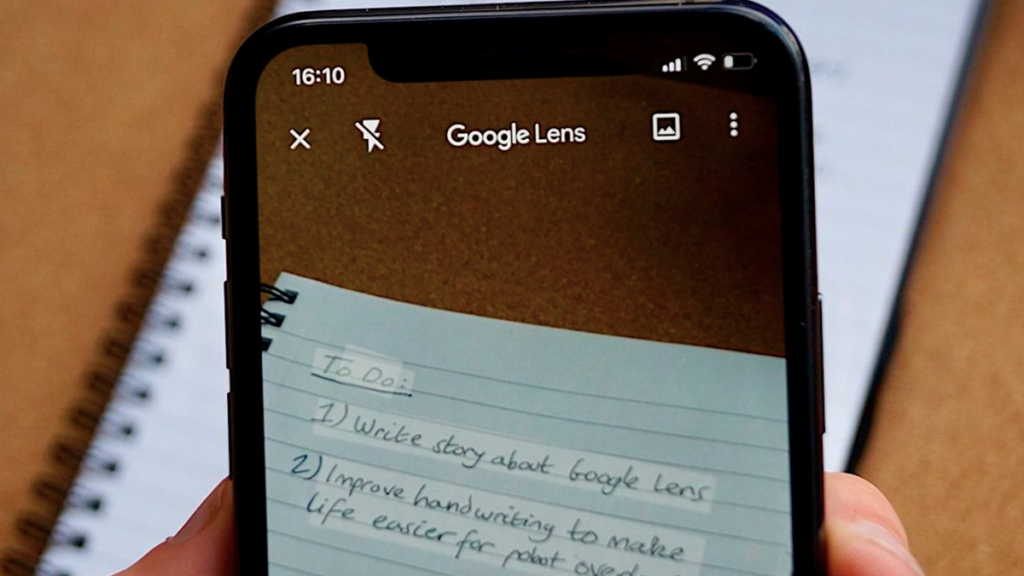 16:10
Google Lens
To Do:
1) Write story about Google Lens
2) Improve handwriting to make
life easier for robot